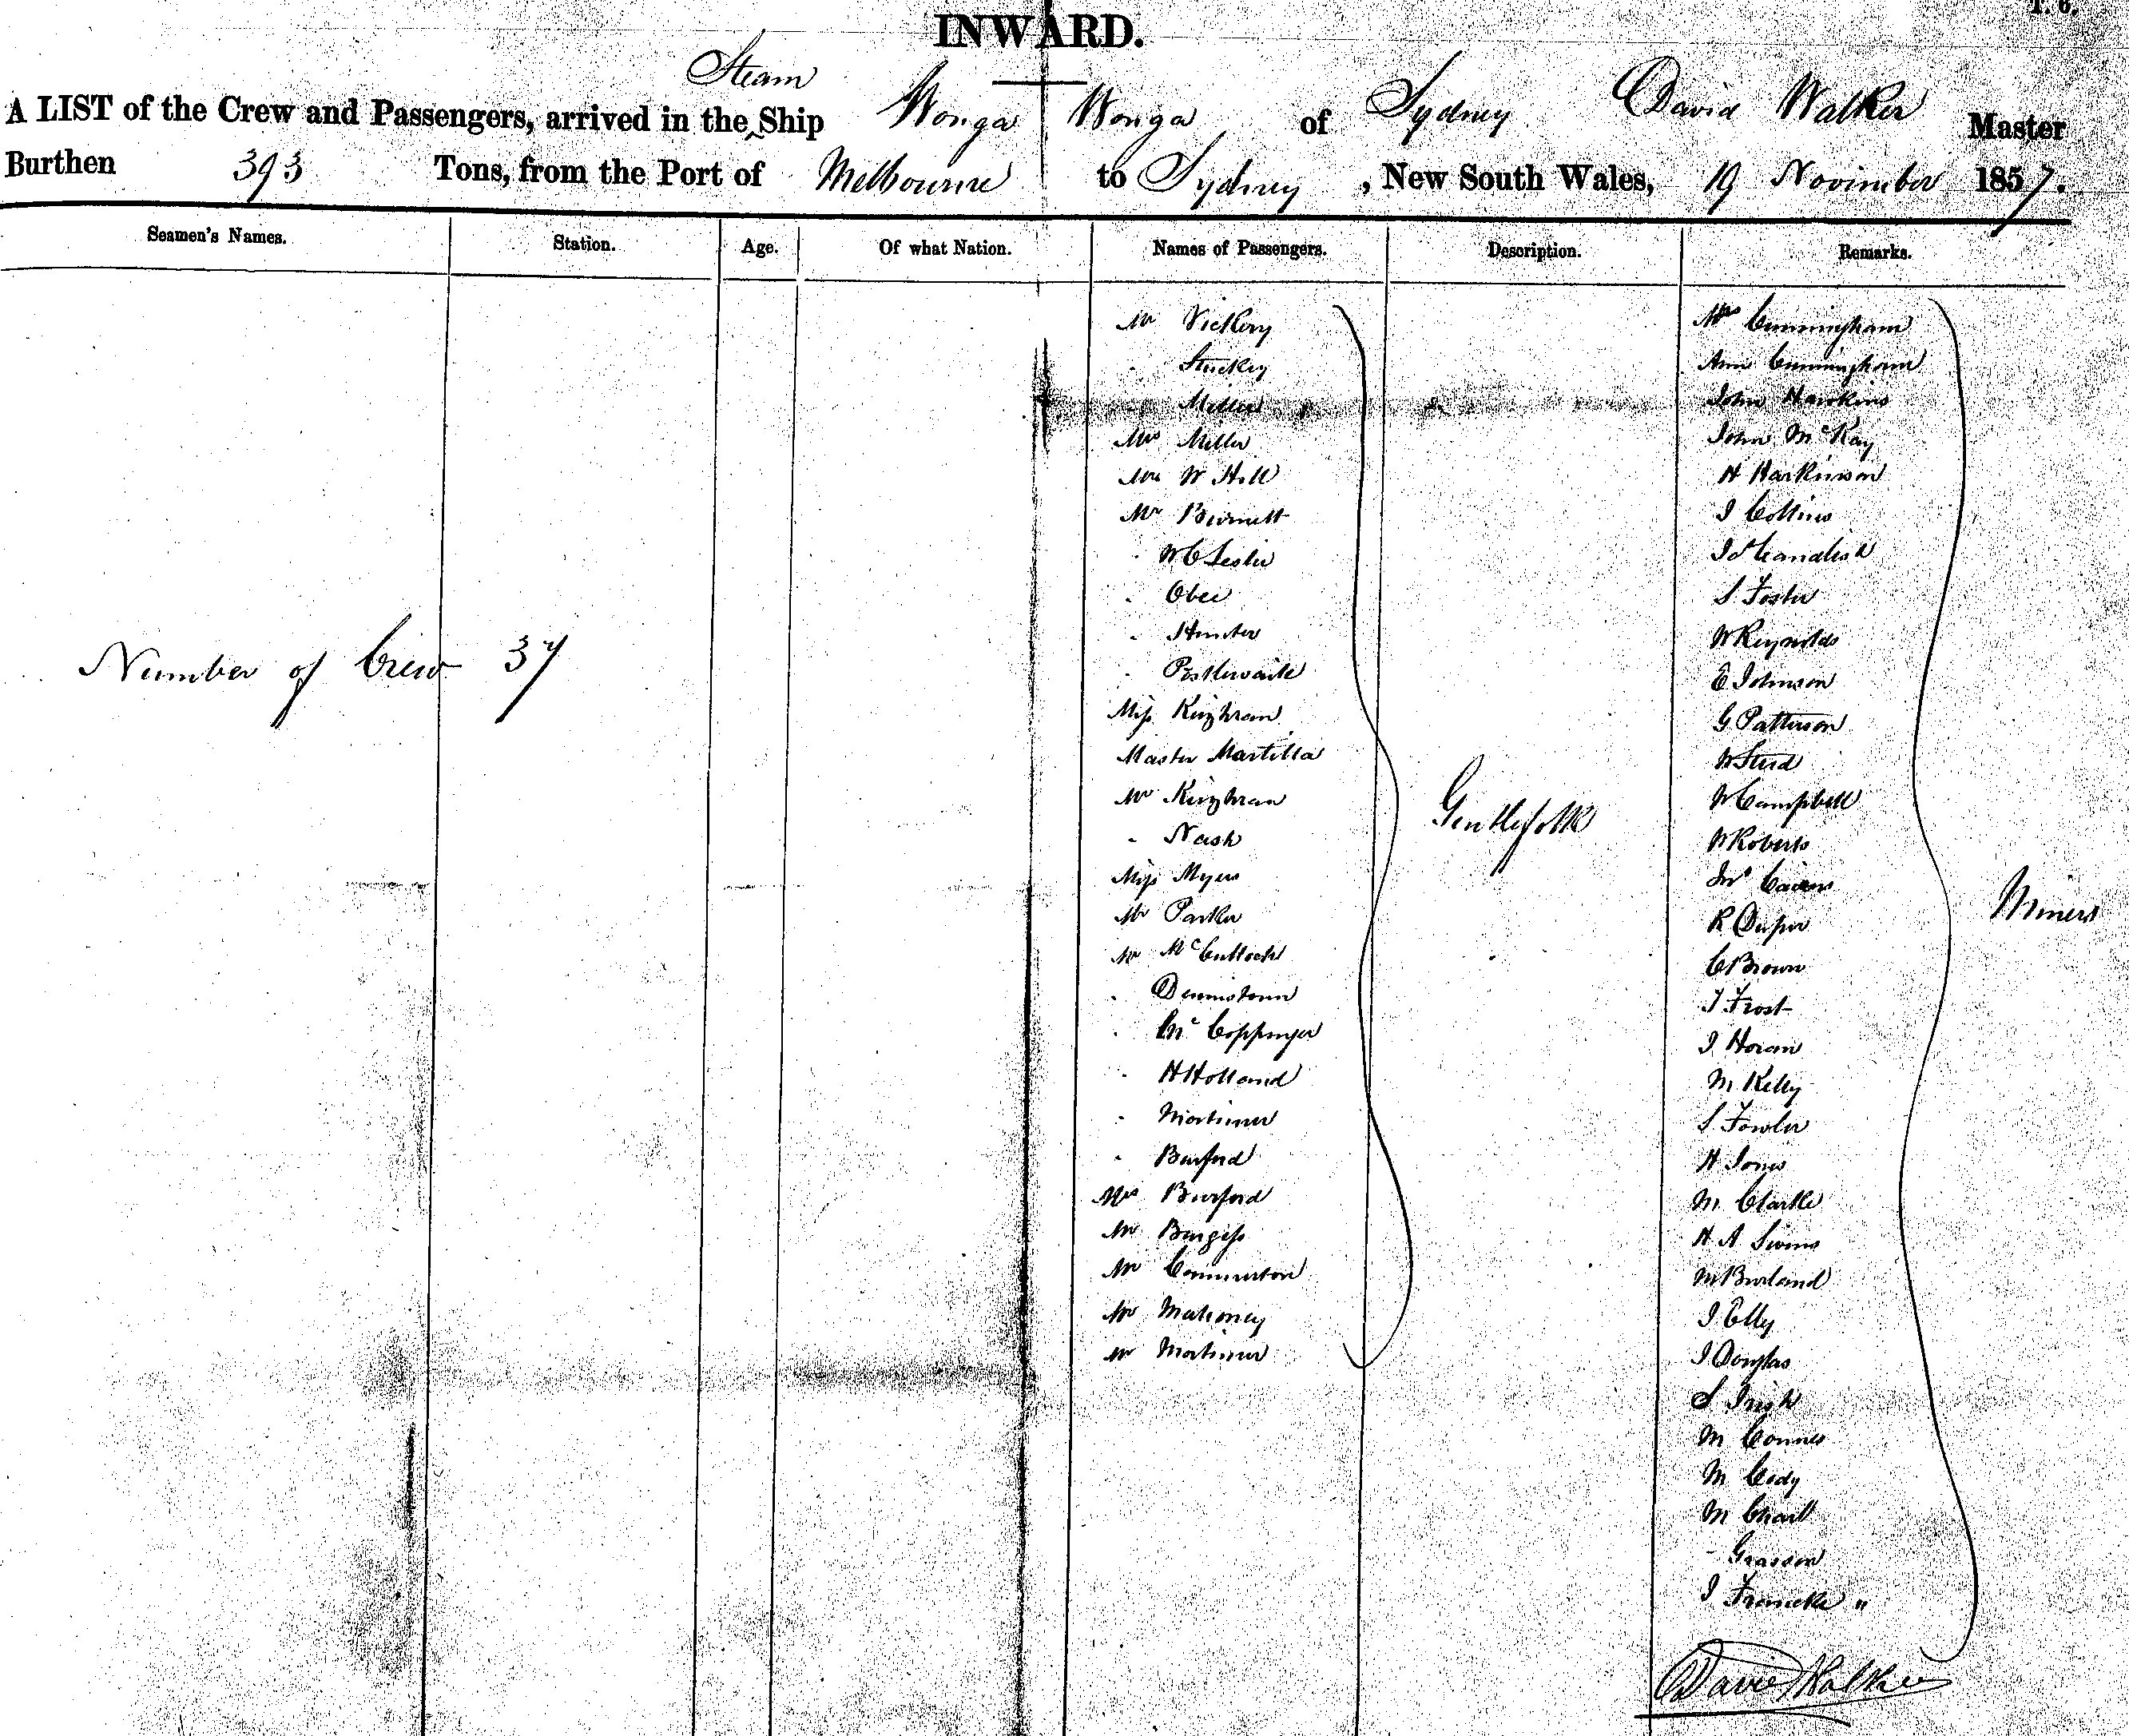 INWARD.
Steam
A LIST of the Crew and Passengers, arrived in the Ship Wonga Wonga of Sydney David Walker Master
Burthen 393 Tons, from the Port of Melbourne to Sydney, New South Wales, 19 November 1857.
Seamen's Names. Station. Age. Of what Nation. Names of Passengers. Description. Remarks.
Mr Vickery
" Stuckey
" Miller
Mrs Miller
Mrs W Hill
Mr Burnett
" W C Leslie
" Obee
" Hunter
" Postlewaite
Miss Keighran
Master Martilla
Mr Keighran
" Nash
Miss Myers
Mr Parker
Mr McCulloch
" Dennistoun
" Mc Coppinger
" H Holland
" Mortimer
" Burford
Mrs Burford
Mr Burgess
Mr Commerton
Mr Mahoney
Mr Mortimer
Number of Crew 37
Gentlefolk
Mrs Cunningham
Ann Cunningham
John Hawkins
John McKay
H Harkinson
J Collins
J McCandlish
S Foster
W Reynolds
E Johnson
G Patterson
W Steed
W Campbell
W Roberts
Jno Cairns
R
C Brown
J Frost
J Horan
M Kelly
S Fowler
H Jones
M Clarke
H A
M Burland
J Elly
J Douglas
S Irish
M Connes
M Cody
M Chall
" Grasson
J Francke "
Miners
David Walker